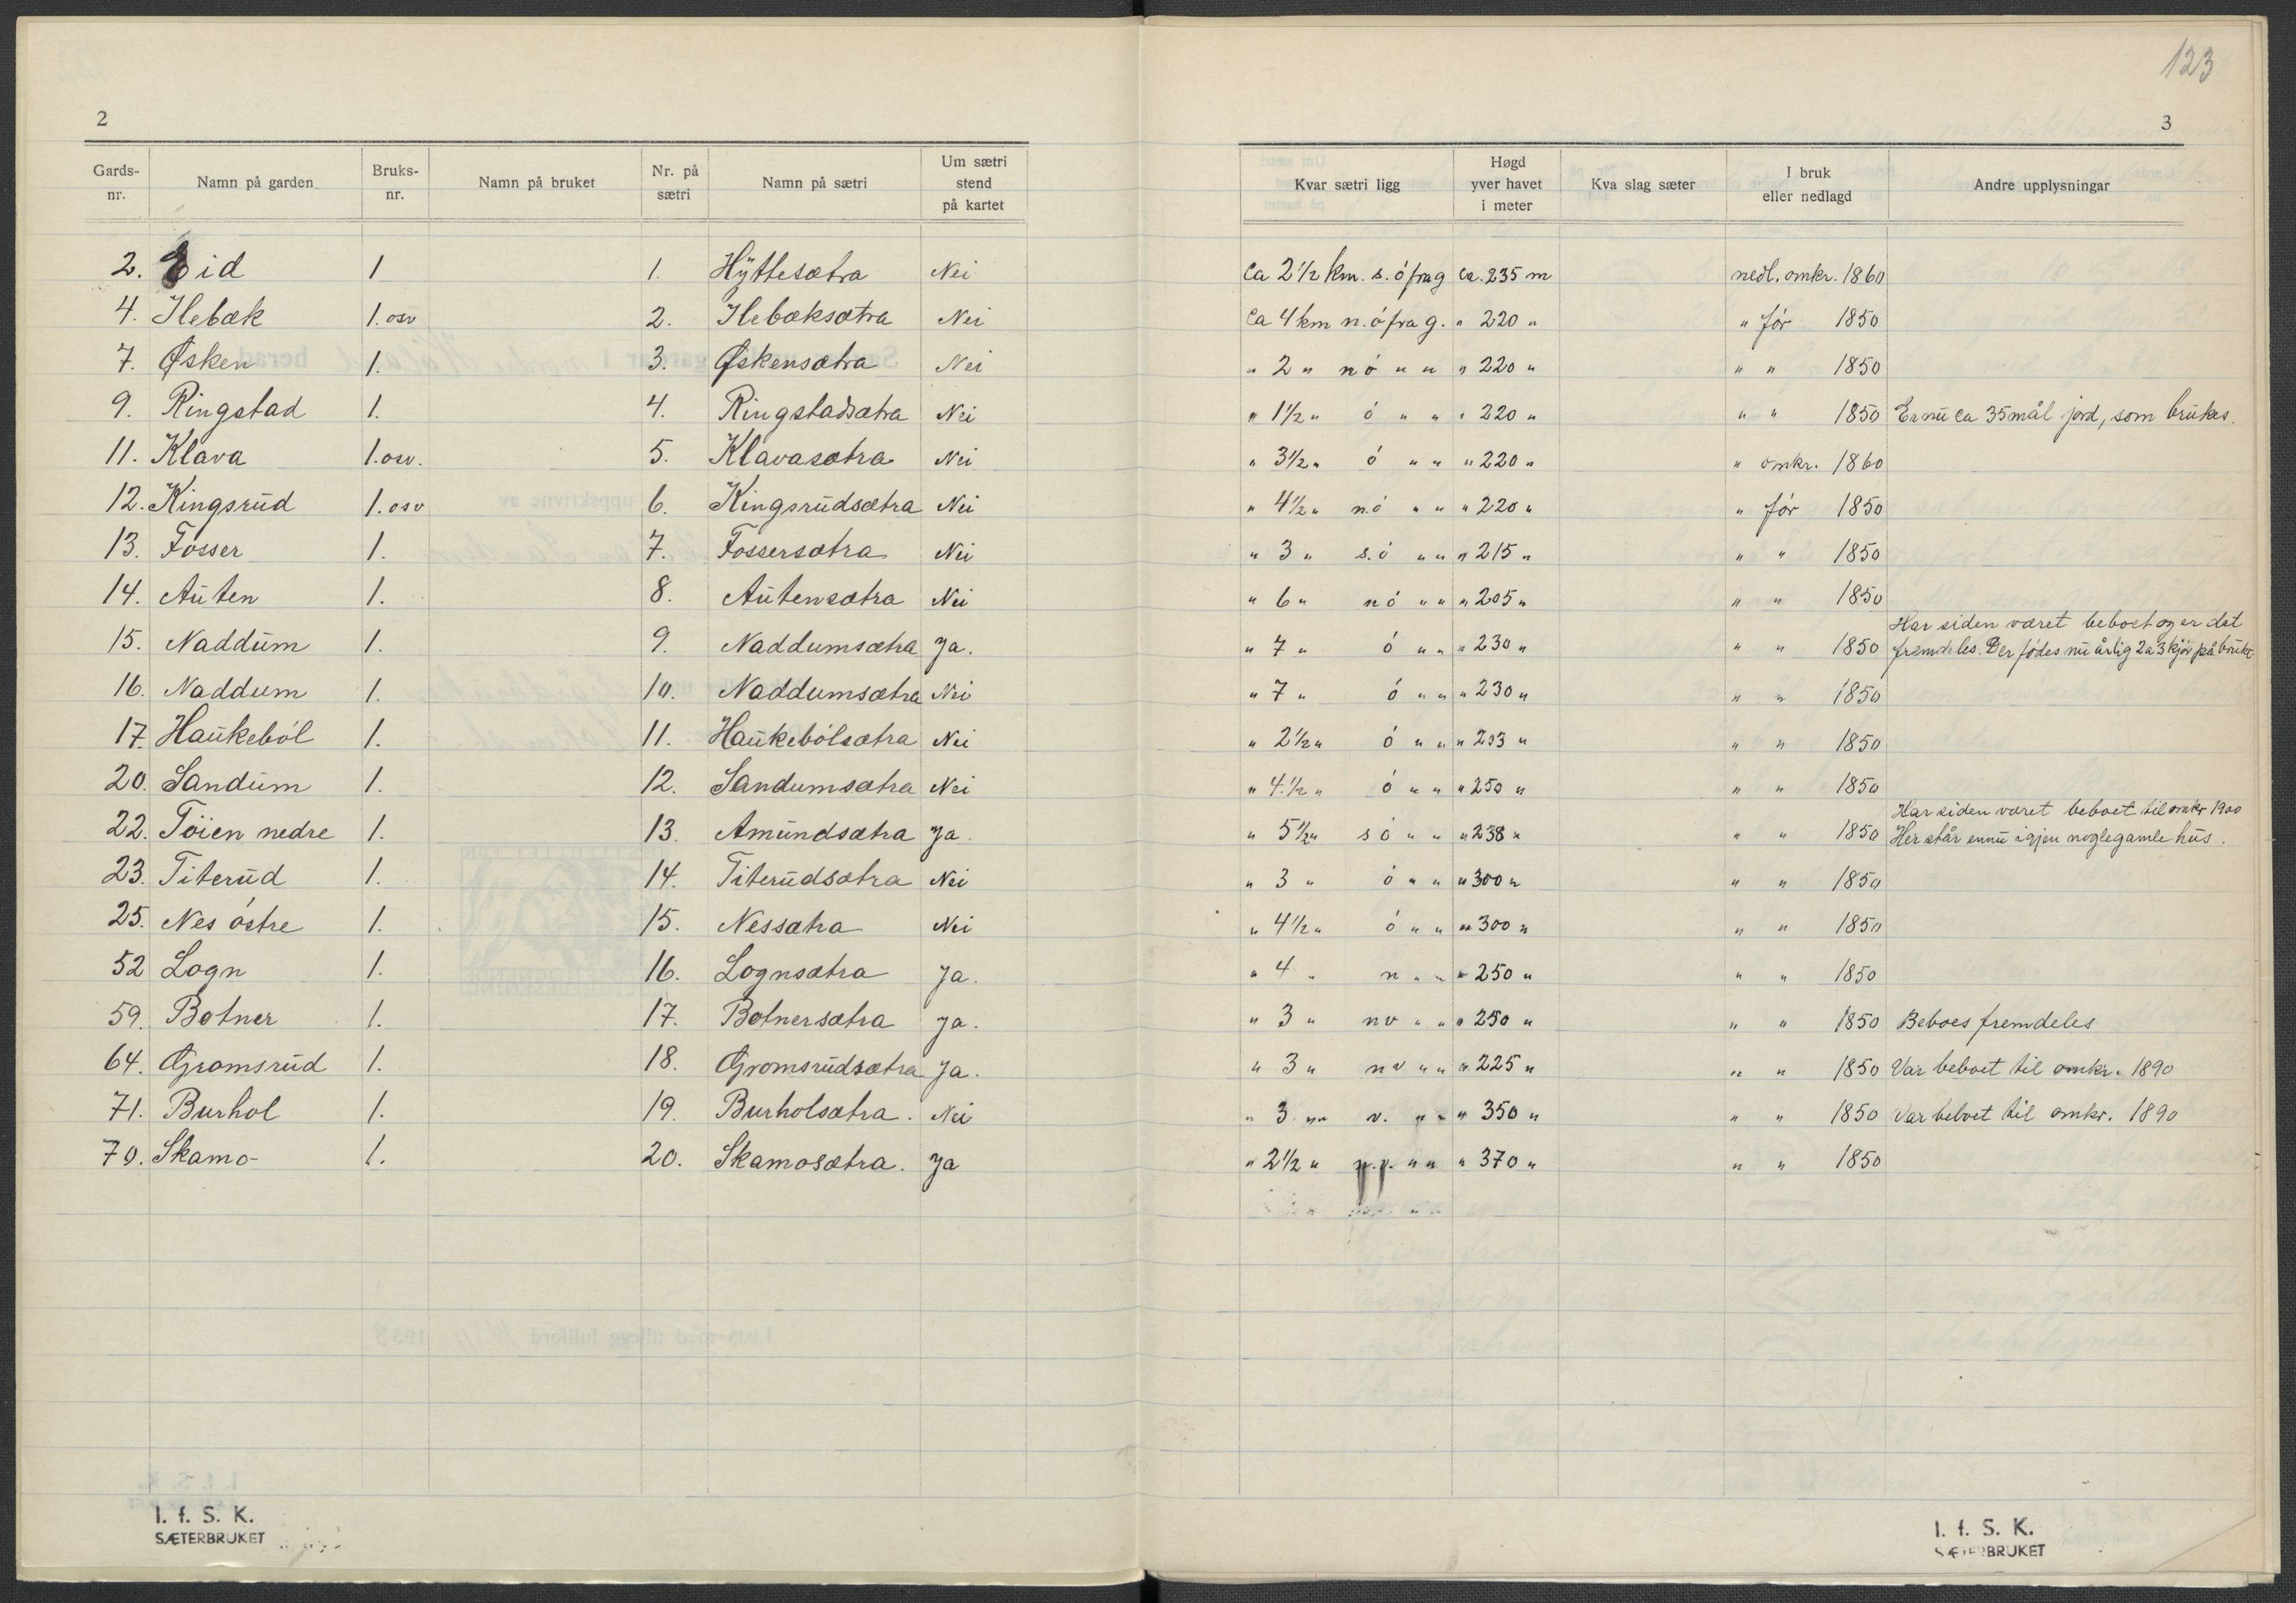 123
2
3
Gards-nr. Namn på garden Bruks-nr. Namn på bruket Nr. på sætri Namn på sætri Um sætri stend på kartet Kvar sætri ligg Høgd yver havet i meter Kva slag sæter I bruk eller nedlagd Andre upplysningar
2. Eid 1 1. Hyttesætra Nei Ca 2 1/2 km. s.ó frag ca. 235 m nedl. omkr. 1860
4. Ilebæk 1. osv 2. Ilebæksætra Nei Ca 4 km n.ó fra g. " 220 " " fór 1850
7. Øsken 1. 3. Øskensætra Nei " 2 " nó " " " 220 " " " 1850
9. Ringstad 1. 4. Ringstadsætra Nei " 1 1/2 " ó " " " 220 " " " 1850 Er nu ca 35 mål jord, som brukes.
11. Klava 1. osv. 5. Klavasætra Nei " 3 1/2 " ó " " " 220 " " omkr. 1860
12. Kingsrud 1. osv 6. Kingsrudsætra Nei " 4 1/2 " n.ó " " " 220 " " fór 1850
13. Fosser 1. 7. Fossersætra Nei " 3 " s.ó " " " 215 " " " 1850
14. Auten 1. 8. Autensætra Nei " 6 " nó " " " 205 " " " 1850
Har siden været beboet og er det
15. Naddum 1. 9. Naddumsætra Ja. " 7 " ó " " " 230 " " " 1850 fremdeles. Der fødes nu årlig 2 a 3 kjór på bruket
16. Naddum 1. 10. Naddumsætra Nei " 7 " ó " " " 230 " " " 1850
17. Haukeból 1. 11. Haukebólsætra Nei " 2 1/2 " ó " " " 233 " " " 1850
20. Sandum 1. 12. Sandumsætra Nei " 4. 1/2 " ó " " " 250 " " " 1850
Har siden været beboet til omkr 1900
22. Töien nedre 1. 13. Amundsætra Ja. " 5 1/2 " só " " " 238 " " " 1850 Her står ennu igjen nogle gamle hus.
23. Titerud 1. 14. Titerudsætra Nei " 3 " ó " " " 300 " " " 1850
25. Nes óstre 1. 15. Nessætra Nei " 4 1/2 " ó " " " 300 " " " 1850
52 Logn 1. 16. Lognsætra Ja. " 4 " n " " " 250 " " " 1850
59. Botner 1. 17. Botnersætra Ja. " 3 " nv " " " 250 " " " 1850 Beboes fremdeles
64. Gromsrud 1. 18. Gromsrudsætra Ja. " 3 " nv " " " 225 " " " 1850 Var beboet til omkr. 1890
71. Burhol 1. 19. Burholsætra. Nei " 3 " v. " " " 350 " " " 1850 Var beboet til omkr. 1890
79. Skamo- 1. 20. Skamosætra. Ja " 2 1/2 " " " " 370 " " " 1850
I. f. S. K.
SÆTERBRUKET
I. f. S. K.
SÆTERBRUKET